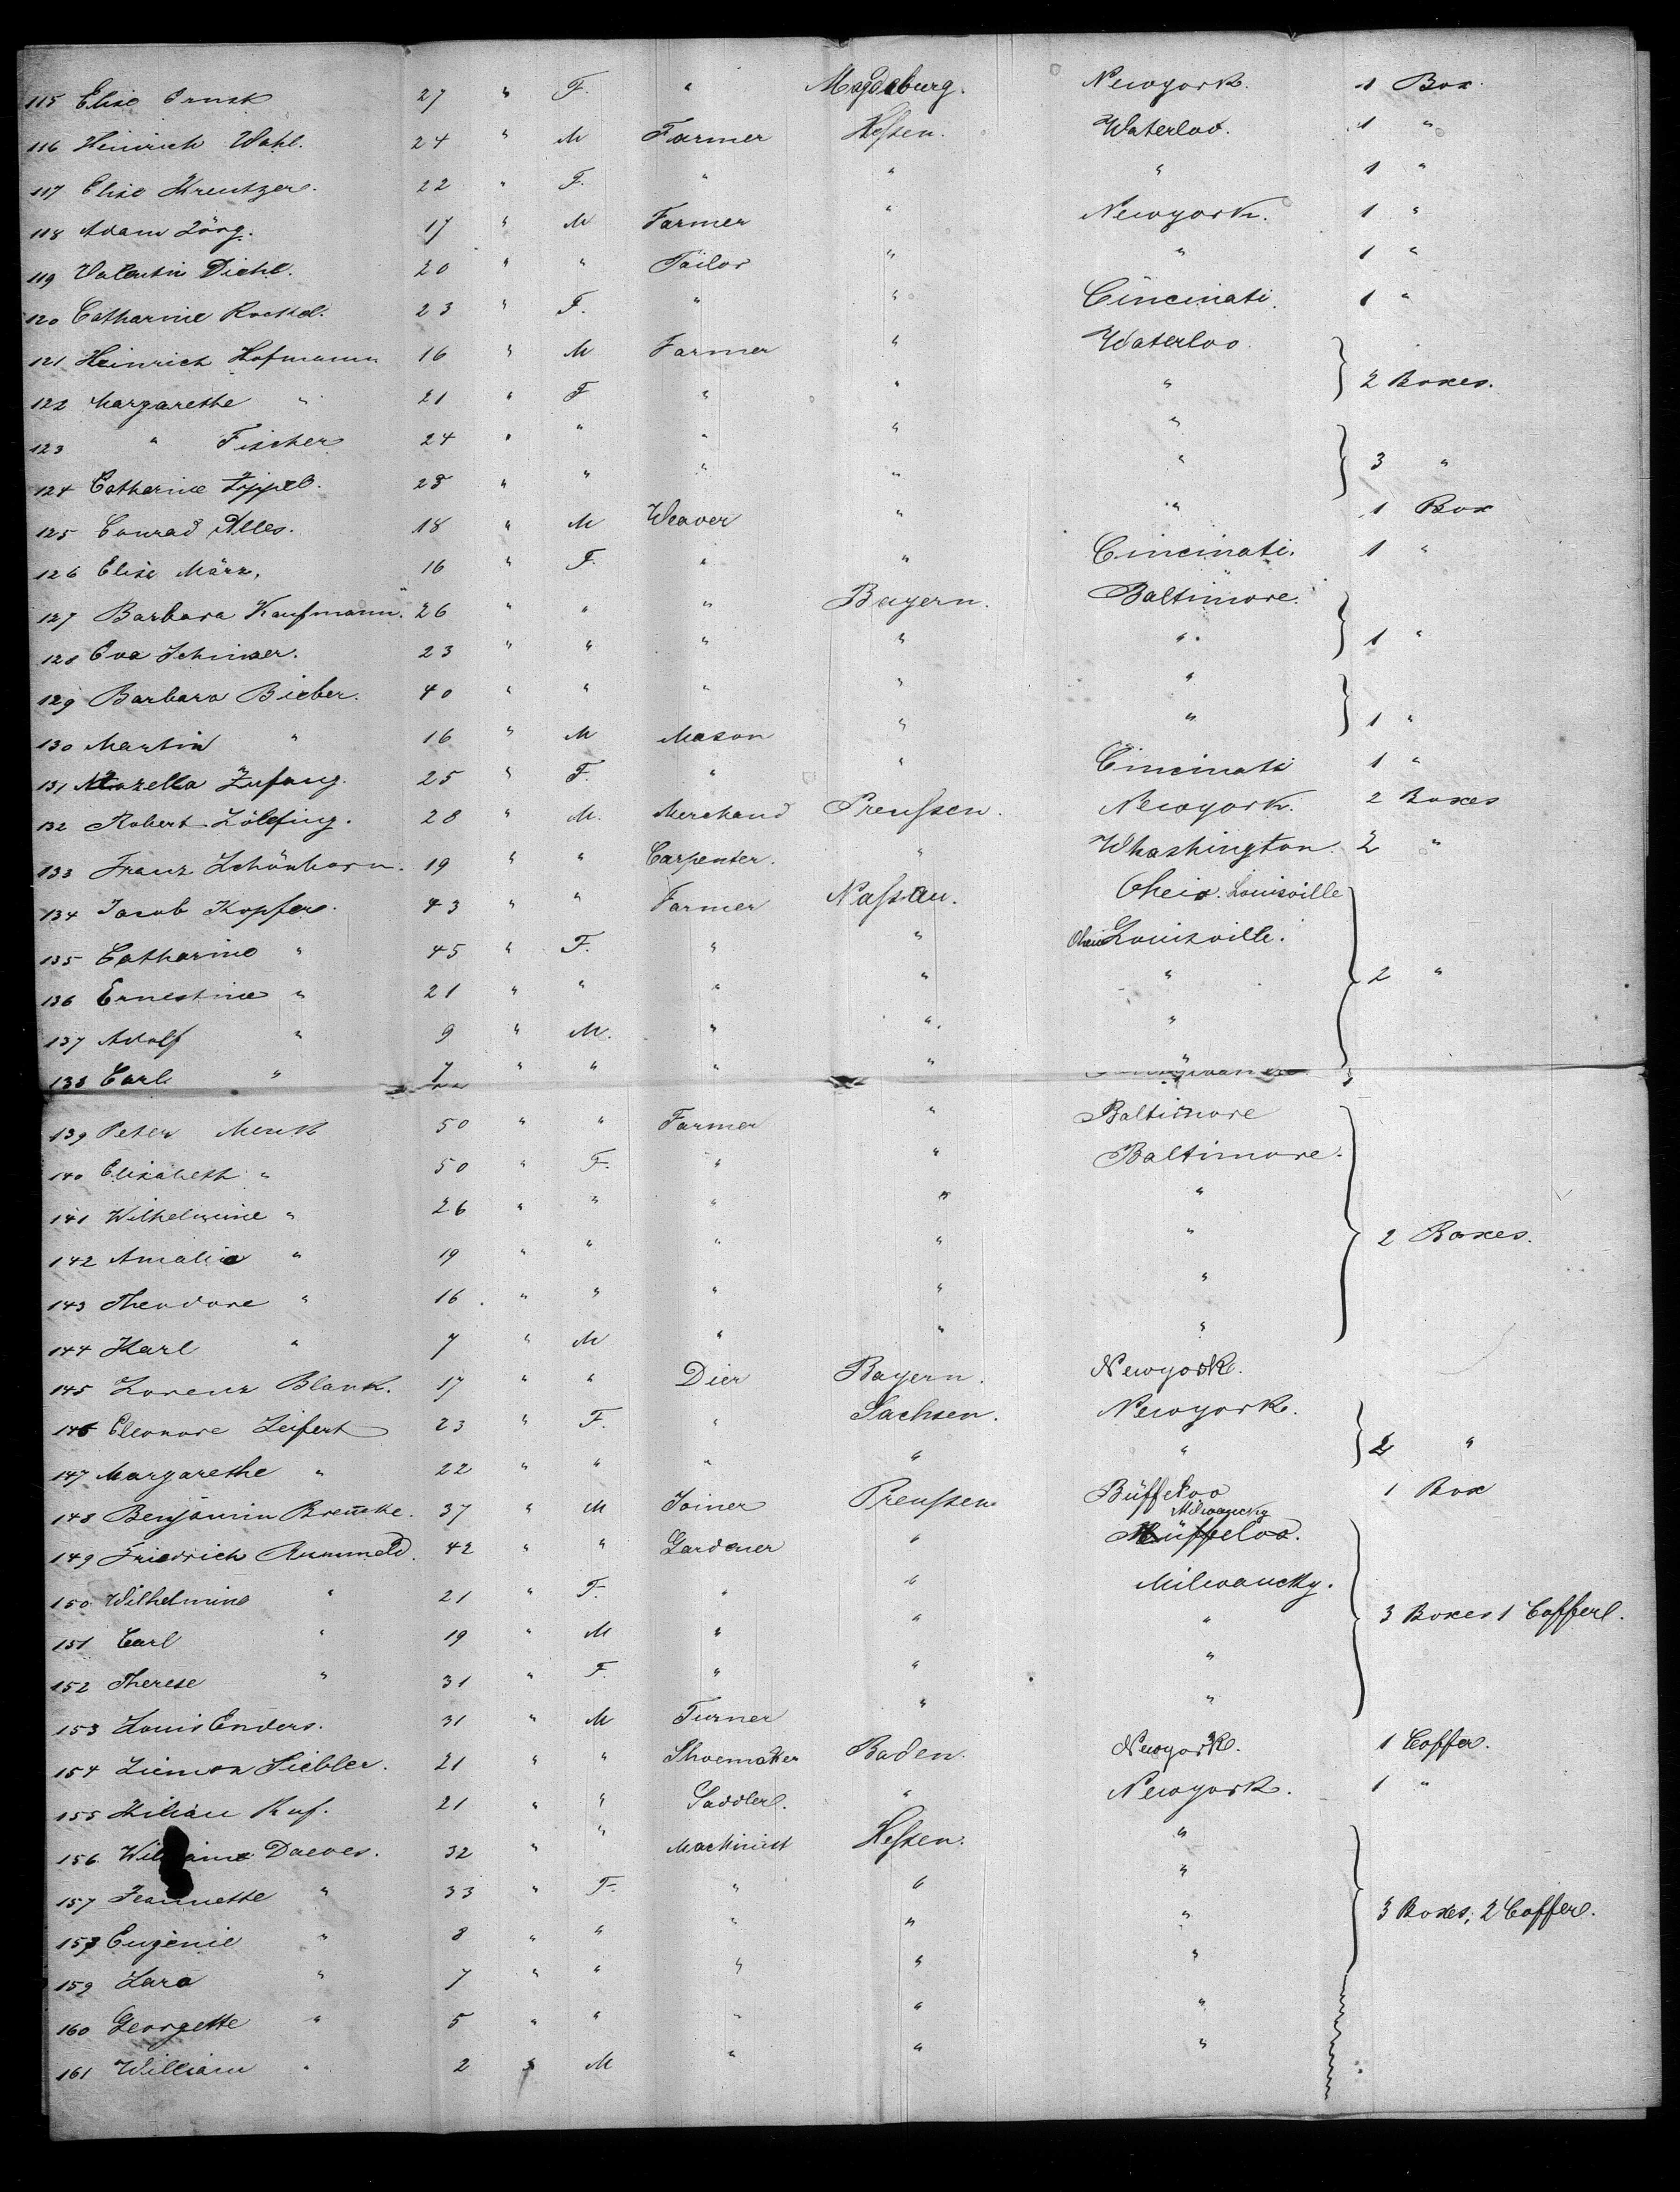 115 Elise Ernst 27 " F. " Magdeburg. Newyork. 1 Box.
116 Heinrich Wahl. 24 " M Farmer Hessen. Waterloo. 1 "
117 Elise Kreutzer. 22 " F. " " " 1 "
118 Adam Zörg. 17 " M Farmer " Newyork. 1 "
119 Valentin Diehl. 20 " " Tailor " " 1 "
120 Catharine 23 " F. " " Cincinati. 1 "
121 Heinrich Hofmann 16 " M Farmer " Waterloo.
122 Margarethe " 21 " F " " " 2 Boxes.
123 " Fischer 24 " " " " "
124 Catharine Zippel. 28 " " " " " 3 "
125 Conrad Alles. 18 " M Weaver " " 1 Box
126 Elise März, 16 " F. " " Cincinati. 1 "
127 Barbara Kaufmann. 26 " " " Bayern. Baltimore.
128 Eva 23 " " " " " 1 "
129 Barbara Bieber. 40 " " " " "
130 Martin " 16 " M Mason " " 1 "
131 Zufang. 25 " F. " " Cincinati 1 "
132 Robert Zölfing. 28 " M. Merchand Preussen. Newyork. 2 Boxes
133 Franz Schönborn. 19 " " Carpenter. " Whashington. 2 "
134 Jacob Kopfer. 43 " " Farmer Nassau. Oheio. Louisville
135 Catharine " 45 " F. " " Oheio Louisville.
136 Ernestine " 21 " " " " " 2 "
137 Adolf " 9 " M. " " "
138 Carl " 7 " " " " "
139 Peter Menk 50 " " Farmer " Baltimore
140 Elisabeth " 50 " F. " " Baltimore.
141 Wilhelmine " 26 " " " " "
142 Amalie " 19 " " " " " 2 Boxes.
143 Theodore " 16 " " " " "
144 Karl " 7 " M " " "
145 Lorenz Blank. 17 " " Dier Bayern. Newyork.
146 Eleonore Seifert 23 " F. " Sachsen. Newyork.
147 Margarethe " 22 " " " " " 2 "
148 Benjamin 37 " M Joiner Preussen Büffeloo 1 Box
Milwaucky
149 Friedrich Rummeld. 42 " " Gardener " Büffeloo.
150 Wilhelmine " 21 " F. " " Milwaucky.
151 Carl " 19 " M " " " 3 Boxes 1 Coffer.
152 Therese " 31 " F. " " "
153 Louis Enders. 31 " M Turner " "
154 Siemon Siebler. 21 " " Shoemaker Baden. Newyork. 1 Coffer.
155 Kilian Ruf. 21 " " Saddler. " Newyork. 1 "
156 Daeves. 32 " " Machinist Hessen. "
157 Jeannette " 33 " F. " " "
158 Eugenie " 8 " " " " " 3 Boxes, 2 Coffer.
159 Lara " 7 " " " " "
160 Georgette " 5 " " " " "
161 William " 2 " M " " "